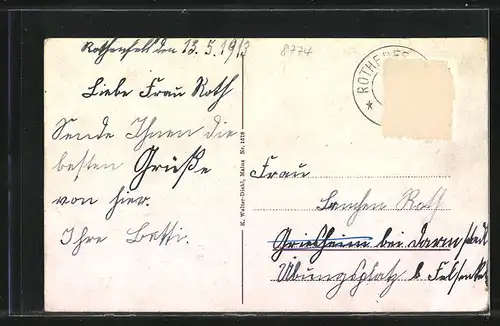 Rothenfels den 13.5.1913
8774
Liebe Frau Roth
Sende Ihnen die
besten Grüße
von hier.
Ihre Betti.
K. Walter-Diehl, Mainz Nr. 1278
ROTHENFE
Frau
Lenchen Roth
Griesheim bei Darmstadt
Übungsplatz b.